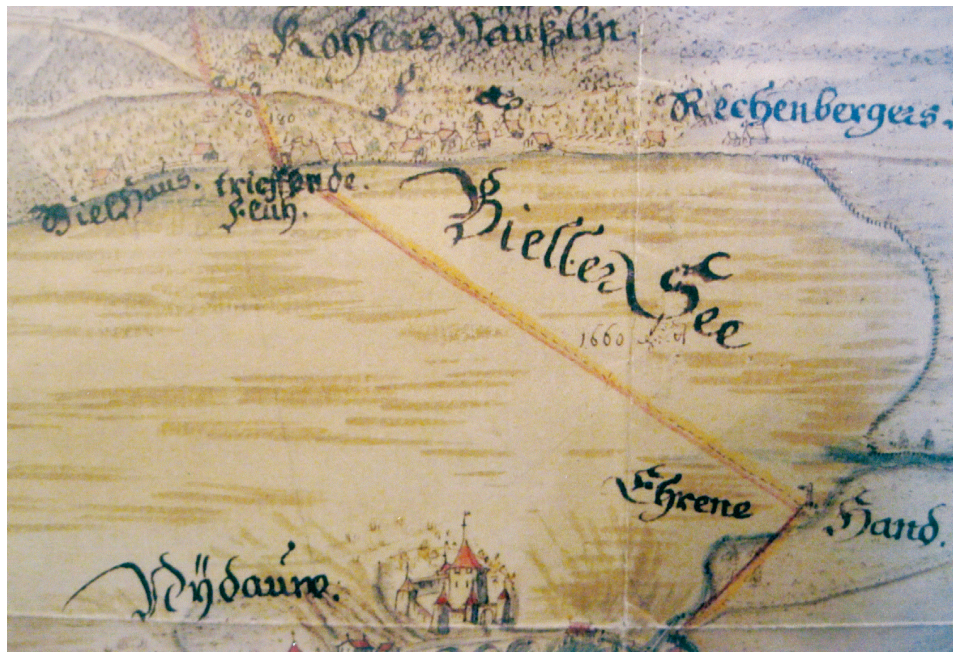 Kohlers Häußlin.
Rechenbergers.
Bielhaus.
trieffende.
Fluh.
Bieller See
1660
Ehrene Hand.
Nÿdauw.